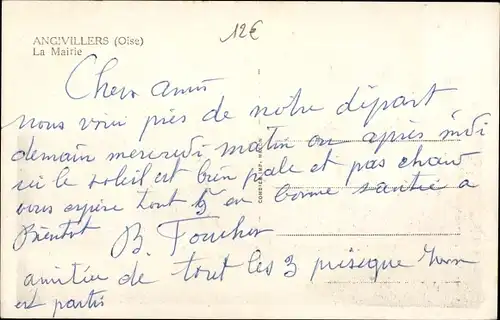 ANGIVILLERS (Oise)
La Mairie
12€
Chers amis
nous voici près de notre départ
demain mercredi matin ou après midi
ici le soleil est bien pale et pas chaud
vous espère tout 5 en bonne santée a
Bientot B. Foucher
amitiée de tout les 3 puisque
est partis